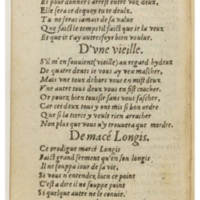 Et pour donner l'arrest entre vous deux,
Elle sera et dequoy tu te deulx,
Ta n'en seras iamais de sa value
Que faict le temps il faict que ie le veux
Et que it t'ay autresfoys bien voulue.
D'vne vieille.
S'il m'en souuient (vieille) au regard hydeux
De quatre dents ie vous ay veu mascher,
Mais vne tous dehors vous en mist deux:
Vne autre tous deux vous en fist cracher.
Or pouez bien toussir sans vous fascher,
Car ces deux tous y ont mis si bon ordre
Que si la tierce y veult rien arracher
Non plus que vous n'y trouuera que mordre.
De macé Longis.
Ce prodigue macé Longis
Faict grand serment qu'en son longis
Il ne souppa iour de sa vie,
Si vous n'entendez bien ce point
C'est a dire il ne souppe point
Si quelque autre ne le conuie.